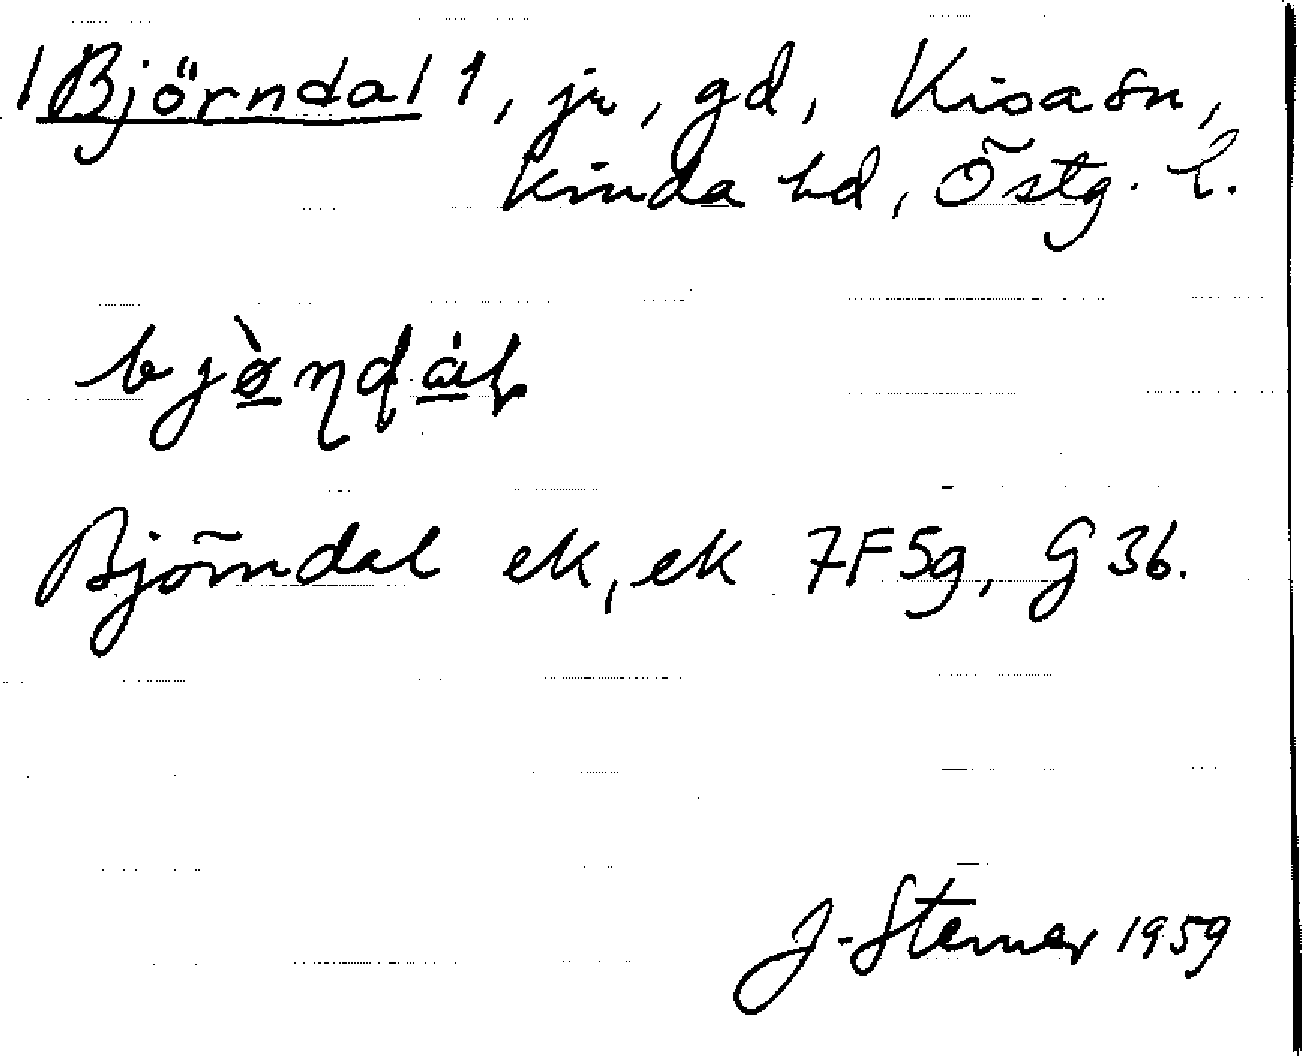 /Björndal/ 1, jr, gd, Kisa sn,
Kinda hd, Östg. l.
bjø̀ɳɖàɫ
Björndal ek, ek 7F5g, G 36.
J. Sterner 1959